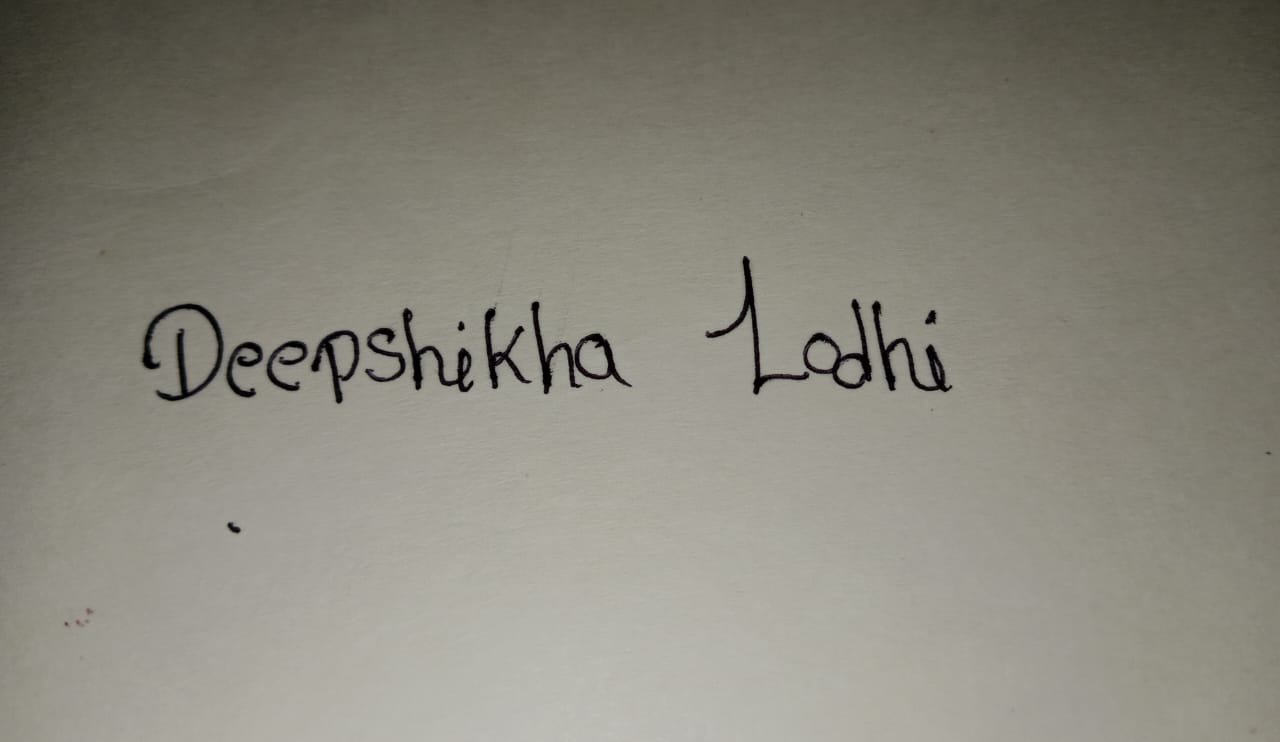 Deepshikha Lodhi